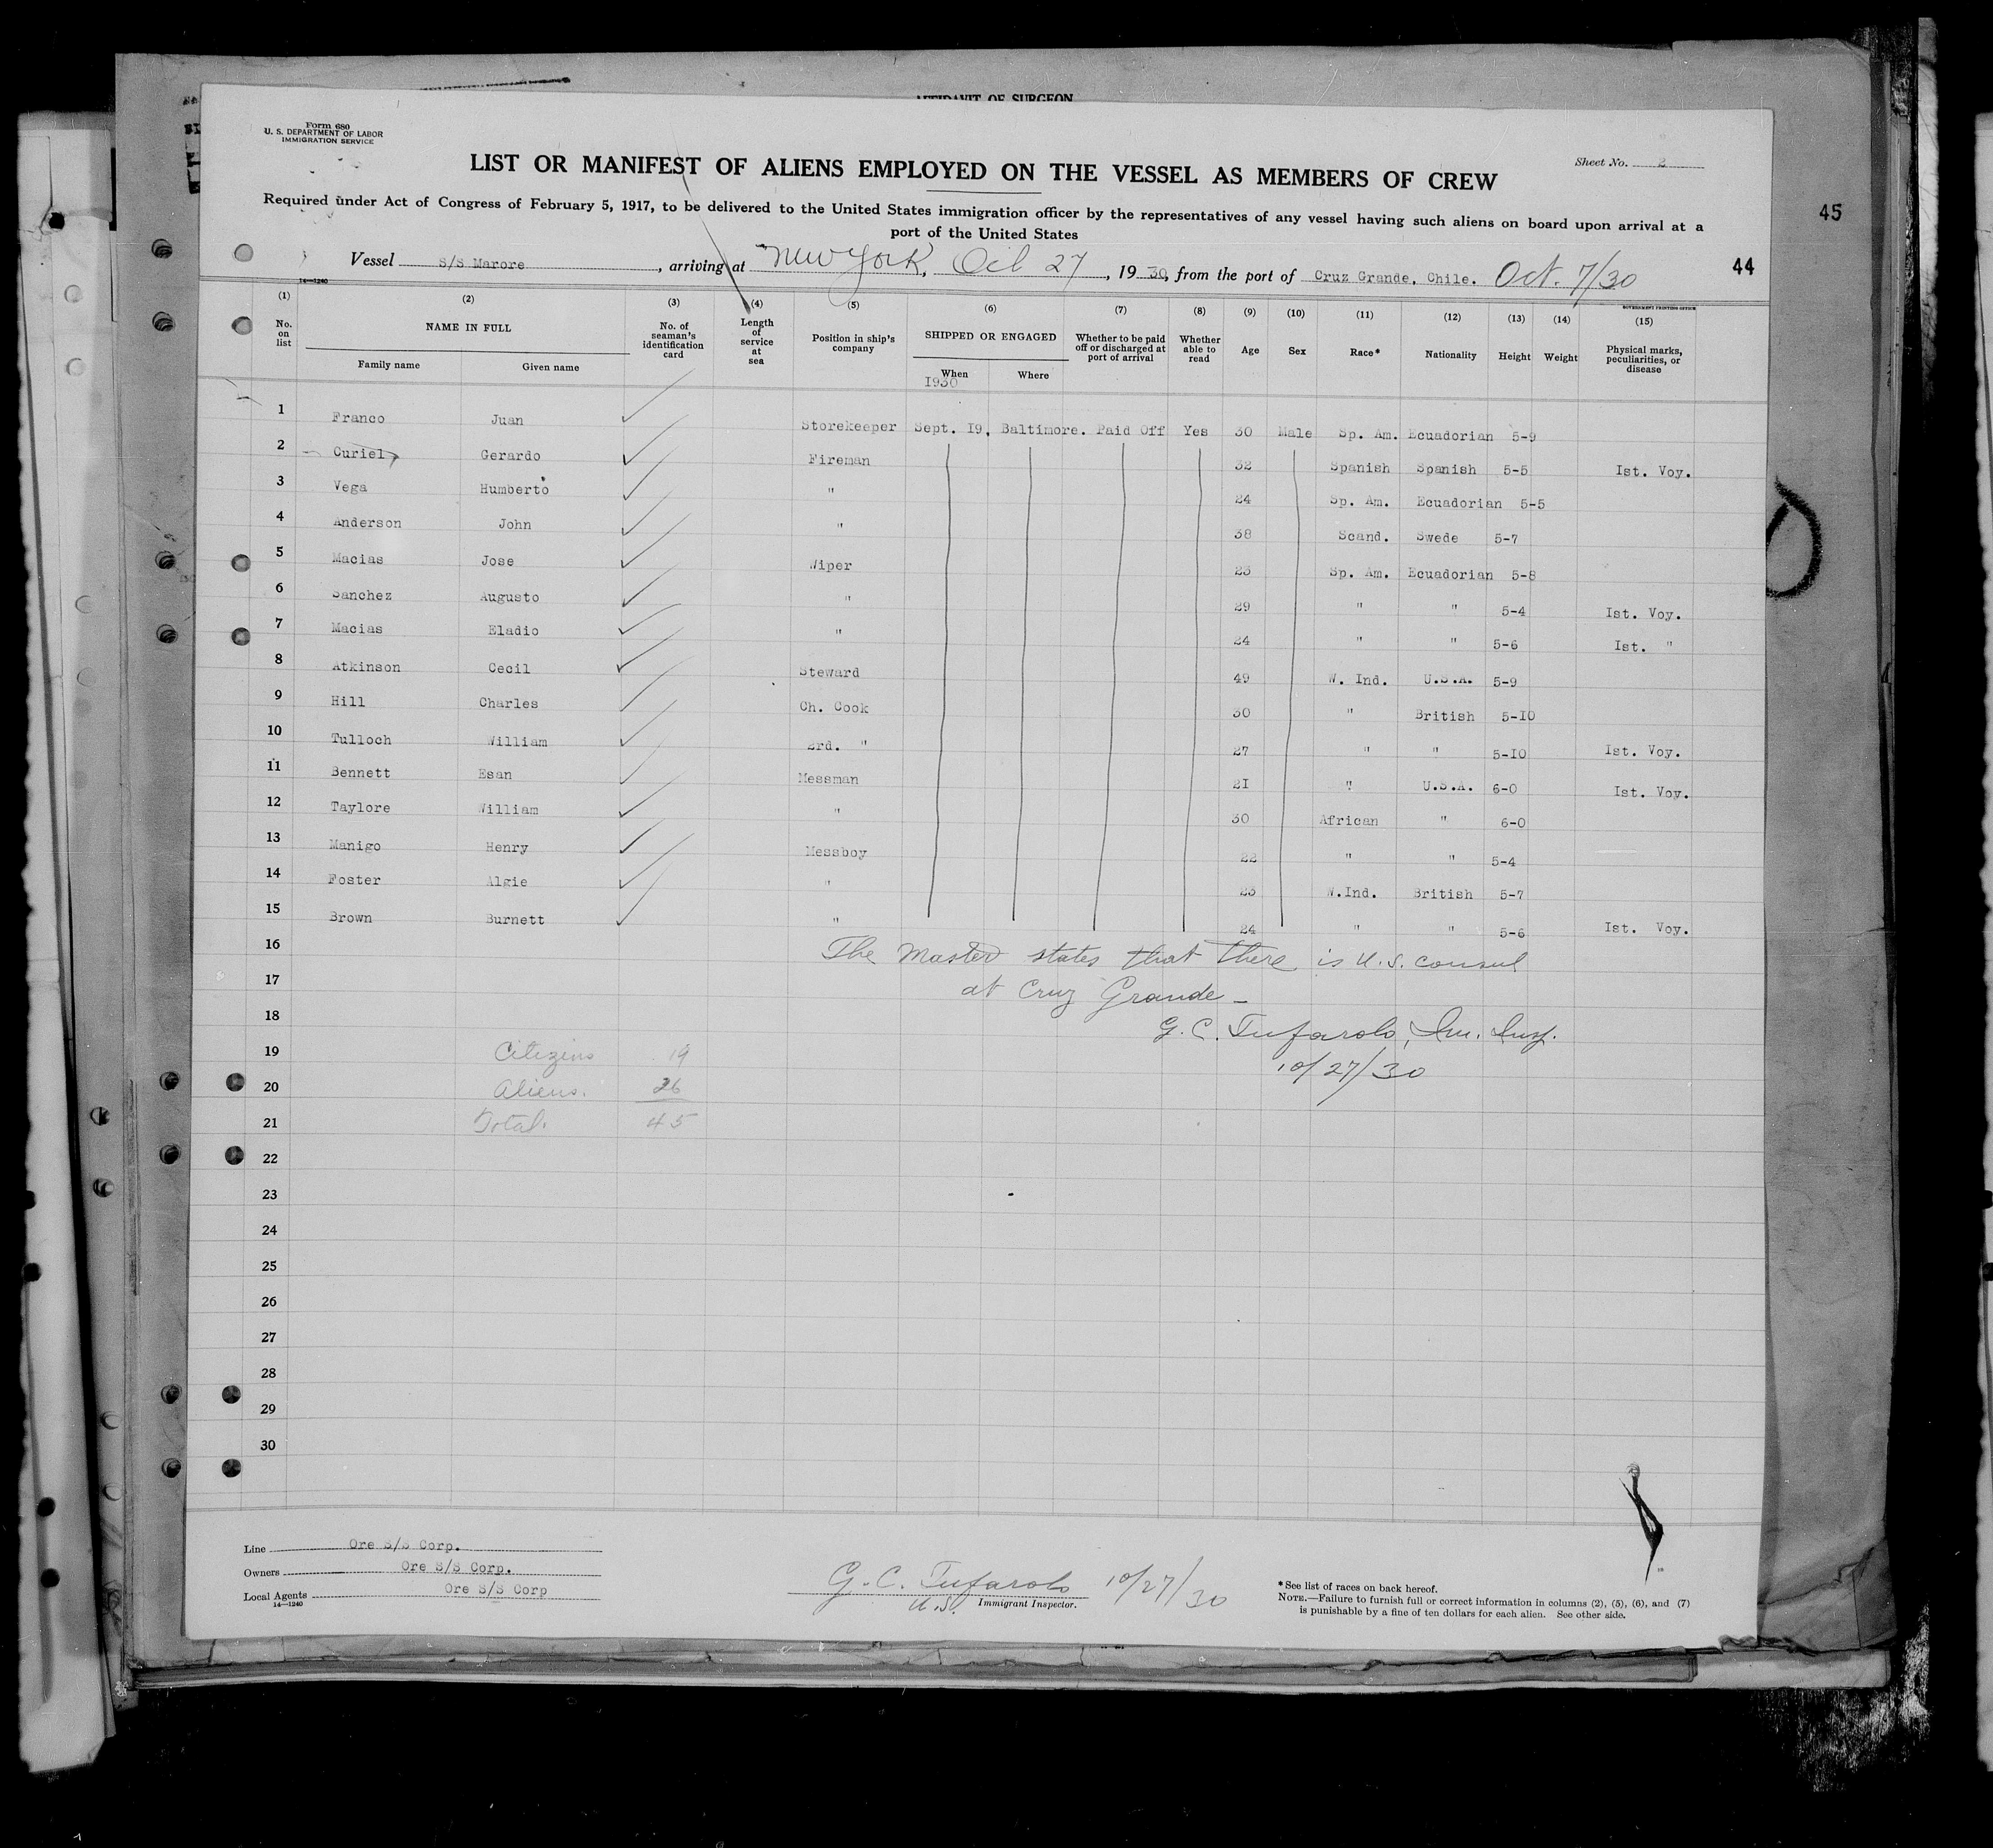 AFFIDAVIT OF SURGEON
Form 680
U. S. DEPARTMENT OF LABOR
IMMIGRATION SERVICE
Sheet No. 2
LIST OR MANIFEST OF ALIENS EMPLOYED ON THE VESSEL AS MEMBERS OF CREW
Required under Act of Congress of February 5, 1917, to be delivered to the United States immigration officer by the representatives of any vessel having such aliens on board upon arrival at a
port of the United States
45
44
Vessel S/S Marore, arriving at New York, Oct 27, 1930, from the port of Cruz Grande, Chile. Oct. 7/30
14—1240
GOVERNMENT PRINTING OFFICE
(1) (2) (3) (4) (5) (6) (7) (8) (9) (10) (11) (12) (13) (14) (15)
No. on list NAME IN FULL Family name Given name No. of seaman's identification card Length of service at sea Position in ship's company SHIPPED OR ENGAGED When Where Whether to be paid off or discharged at port of arrival Whether able to read Age Sex Race* Nationality Height Weight Physical marks, peculiarities, or disease
1930
1 Franco Juan Storekeeper Sept. I9, Baltimore. Paid Off Yes 30 Male Sp. Am. Ecuadorian 5-9
2 Curiel Gerardo Fireman 32 Spanish Spanish 5-5 Ist. Voy.
3 Vega Humberto " 24 Sp. Am. Ecuadorian 5-5
4 Anderson John " 38 Scand. Swede 5-7
5 Macias Jose Wiper 23 Sp. Am. Ecuadorian 5-8
6 Sanchez Augusto " 29 " " 5-4 Ist. Voy.
7 Macias Eladio " 24 " " 5-6 Ist. "
8 Atkinson Cecil Steward 49 W. Ind. U.S.A. 5-9
9 Hill Charles Ch. Cook 30 " British 5-I0
10 Tulloch William 2rd. " 27 " " 5-I0 Ist. Voy.
11 Bennett Esan Messman 2I " U.S.A. 6-0 Ist. Voy.
12 Taylore William " 30 African " 6-0
13 Manigo Henry Messboy 22 " " 5-4
14 Foster Algie " 23 W.Ind. British 5-7
15 Brown Burnett " 24 " " 5-6 Ist. Voy.
16 The Master states that there is U.S. consul
17 at Cruz Grande —
18 G. C. Tufarolo, Im. Insp.
19 Citizens 19 10/27/30
20 Aliens. 26
21 Total. 45
22
23
24
25
26
27
28
29
30
Line Ore S/S Corp.
Owners Ore S/S Corp.
Local Agents Ore S/S Corp
14—1240
G. C. Tufarolo 10/27/30
U.S. Immigrant Inspector.
*See list of races on back hereof.
NOTE.—Failure to furnish full or correct information in columns (2), (5), (6), and (7)
is punishable by a fine of ten dollars for each alien. See other side.